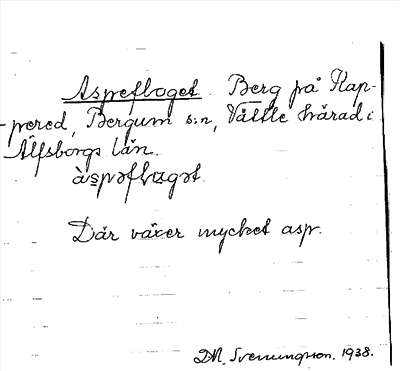 Aspeflaget. Berg på Kap-
pered, Bergum s:n, Vättle härad i
Älfsborgs län.
àspəflagət.
Där växer mycket asp.
D.N. Svenningson. 1938.